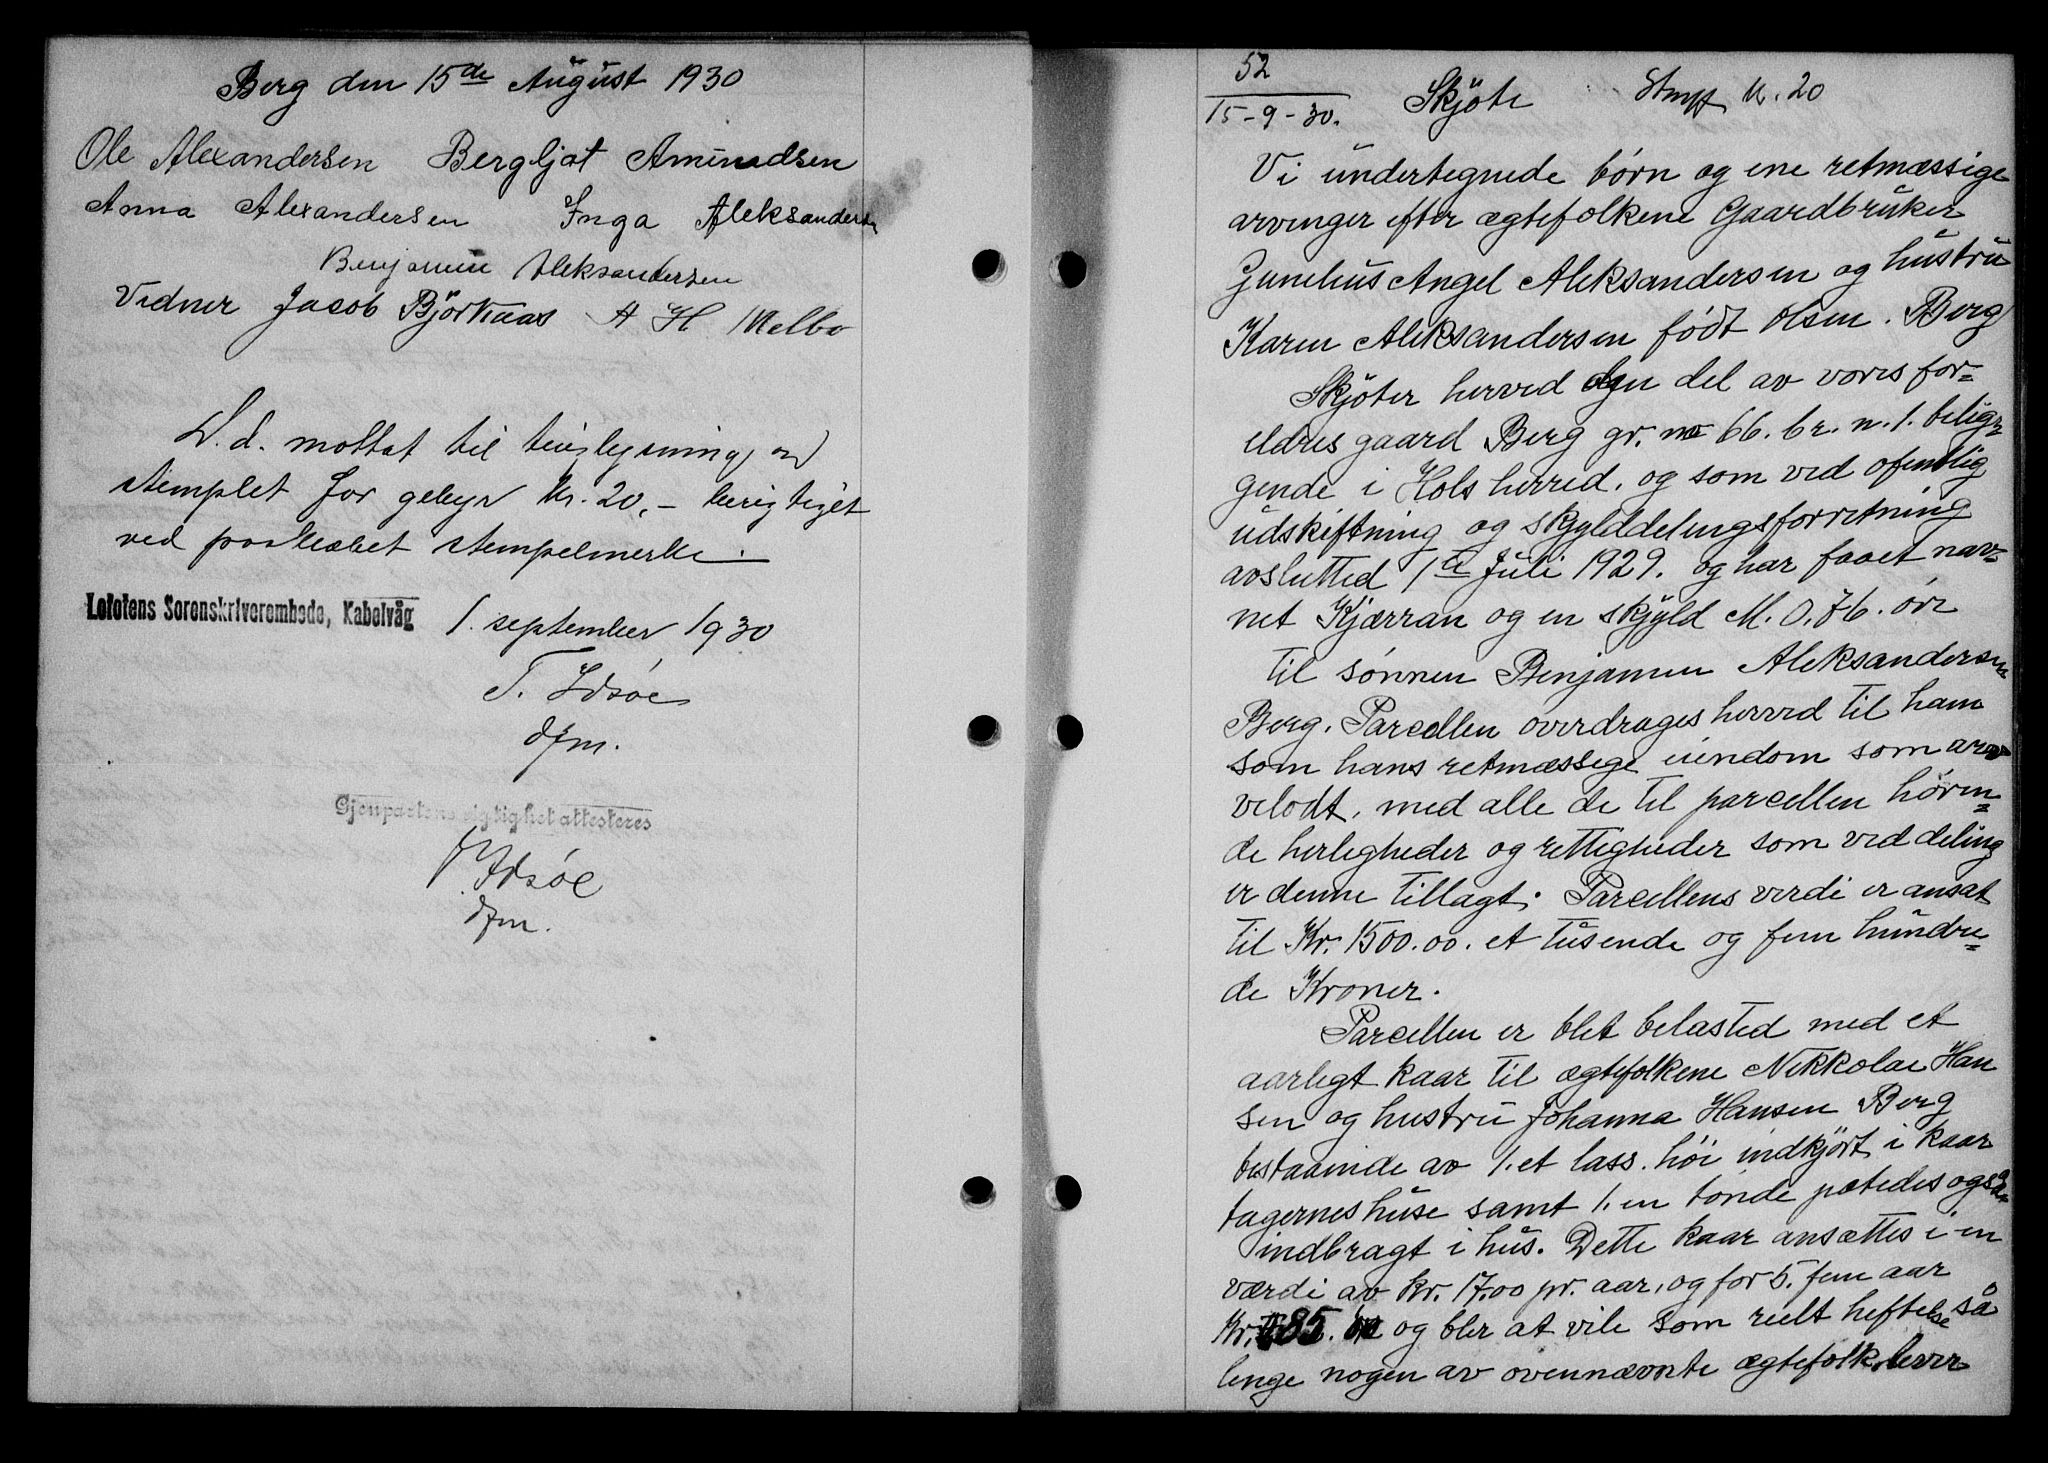 Berg den 15de August 1930
Ole Alexandersen Bergljot Amundsen
Anna Alexandersen Inga Aleksandersen
Benjamin Aleksandersen
Vidner Jacob Björkaas A H Melbo
D.d. mottat til tinglysning og
stemplet for gebyr kr. 20,- berigtiget
ved paaklæbet stempelmerke.
Lofotens Sorenskriverembede, Kabelvåg 1. september 1930
T. Idsøe
dfm.
Gjenpartens rigtighet attesteres
T. Idsøe
dfm.
52
15-9-30. Skjöte Stmpl. kr. 20
Vi undertegnede børn og ene retmæssige
arvinger efter ægtefolkene Gaardbruker
Angel Aleksandersen og hustru
Karen Aleksandersen født Olsen. Berg
Skjöter herved den del av vores for=
eldres gaard Berg gr. no 66. br. n. 1. belig=
gende i Hols herred. og som ved ofentlig
udskiftning og skjylddelingsforretning
avslutted 1ste Juli 1929. og har faaet nav=
net Kjærran og en skjyld M. 0.76. øre
til sønnen Benjamin Aleksandersen
Berg. Parcellen overdrages herved til ham
som hans retmæssige eiendom som ar
velodt, med alle de til parcellen hören=
de herligheder og rettigheder som ved deling
er denne tillagt. Parcellens verdi er ansat
til Kr. 1500.00. et tusende og fem hundre=
de Kroner.
Parcellen er blet belasted med et
aarligt kaar til ægtefolkene Nikkolai Han
sen og hustru Johanna Hansen Berg
bestaaende av 1. et lass. höi indkjört i kaar
tagernes huse samt 1. en tönde potedes også
indbragt i hus. Dette kaar ansættes i en
værdi av kr. 17.00 pr. aar, og for 5. fem aar
Kr. 85.00 og bler at vile som reelt heftelse så
lenge nogen av ovennævnte ægtefolk lever